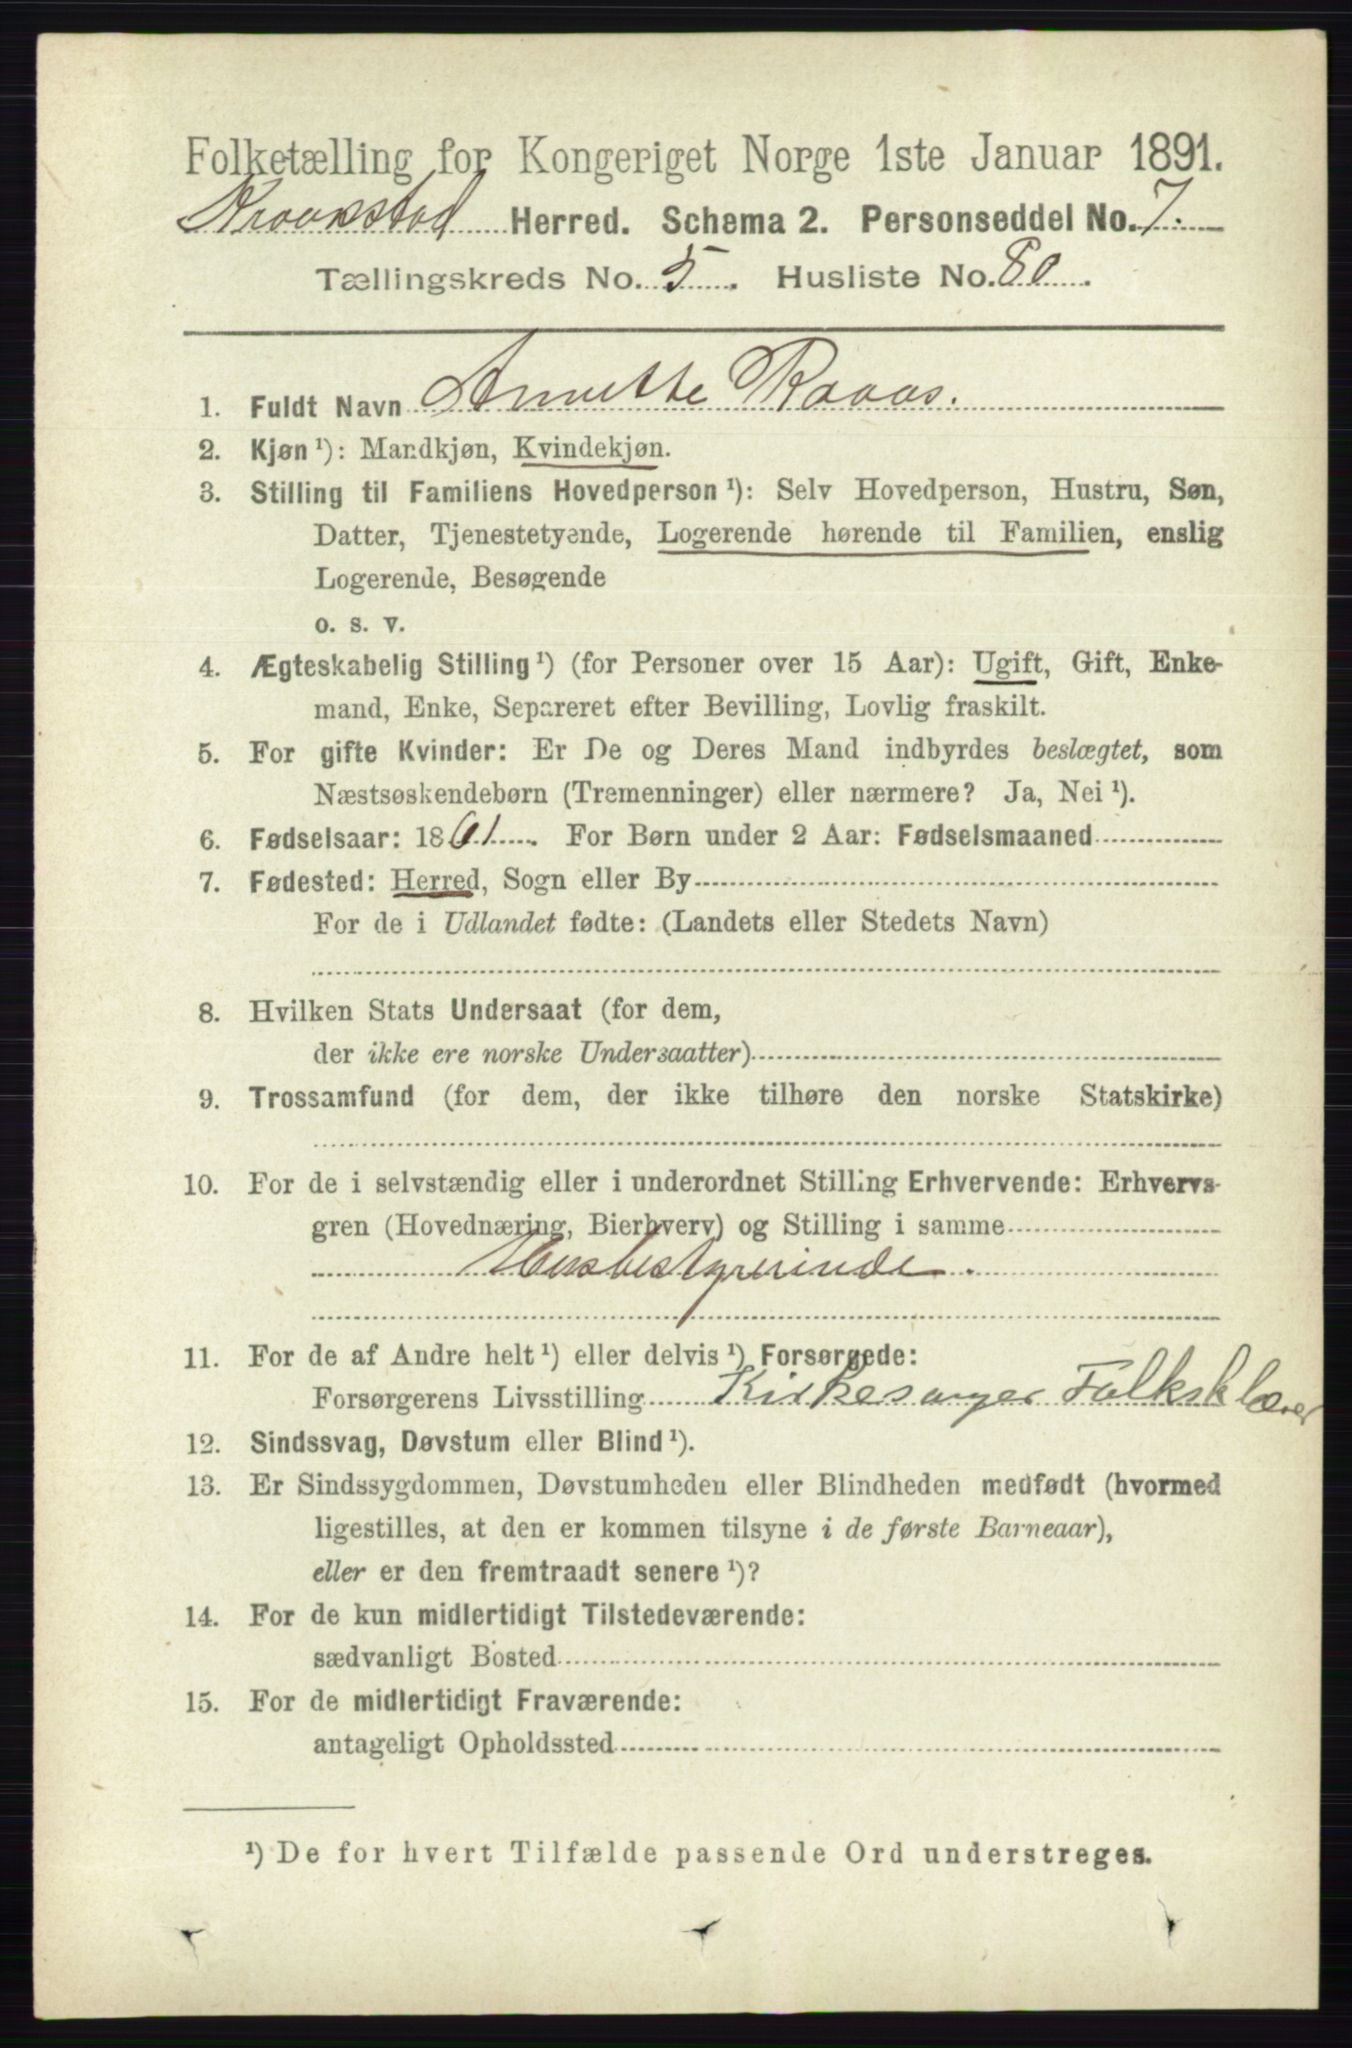 Folketælling for Kongeriget Norge 1ste Januar 1891.
Kraakstad Herred. Schema 2. Personseddel No. 7.
Tællingskreds No. 5. Husliste No. 80.
1. Fuldt Navn Annette Raaas.
2. Kjøn ¹): Mandkjøn, Kvindekjøn.
3. Stilling til Familiens Hovedperson ¹): Selv Hovedperson, Hustru, Søn,
Datter, Tjenestetyende, Logerende hørende til Familien, enslig
Logerende, Besøgende
o. s. v.
4. Ægteskabelig Stilling ¹) (for Personer over 15 Aar): Ugift, Gift, Enke-
mand, Enke, Separeret efter Bevilling, Lovlig fraskilt.
5. For gifte Kvinder: Er De og Deres Mand indbyrdes beslægtet, som
Næstsøskendebørn (Tremenninger) eller nærmere? Ja, Nei ¹).
6. Fødselsaar: 1861. For Børn under 2 Aar: Fødselsmaaned
7. Fødested: Herred, Sogn eller By
For de i Udlandet fødte: (Landets eller Stedets Navn)
8. Hvilken Stats Undersaat (for dem,
der ikke ere norske Undersaatter)
9. Trossamfund (for dem, der ikke tilhøre den norske Statskirke)
10. For de i selvstændig eller i underordnet Stilling Erhvervende: Erhvervs-
gren (Hovednæring, Bierhverv) og Stilling i samme
Husbestyrerinde.
11. For de af Andre helt ¹) eller delvis ¹) Forsørgede:
Forsørgerens Livsstilling Kirkesanger Folkesklærer
12. Sindssvag, Døvstum eller Blind ¹).
13. Er Sindssygdommen, Døvstumheden eller Blindheden medfødt (hvormed
ligestilles, at den er kommen tilsyne i de første Barneaar),
eller er den fremtraadt senere ¹)?
14. For de kun midlertidigt Tilstedeværende:
sædvanligt Bosted
15. For de midlertidigt Fraværende:
antageligt Opholdssted
¹) De for hvert Tilfælde passende Ord understreges.